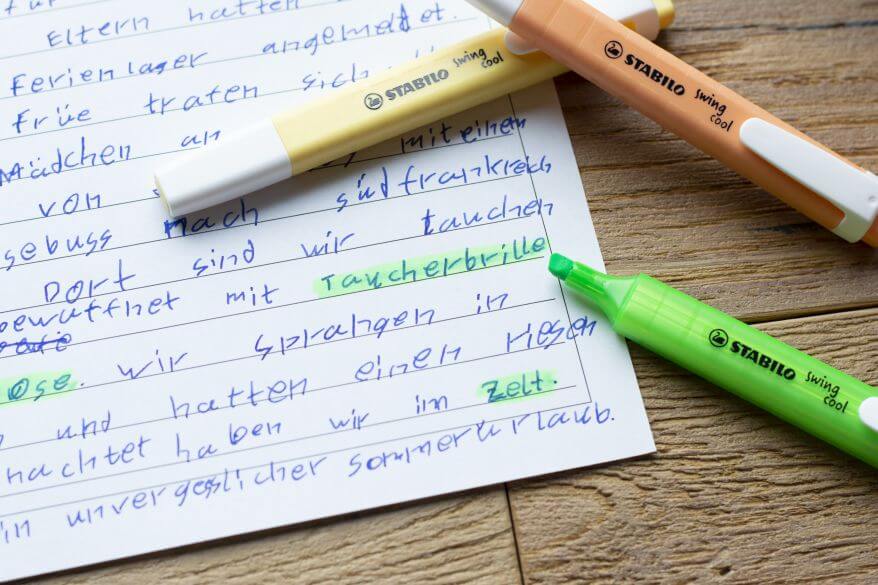 Eltern hatten
Ferienlager angemeldet.
Früe traten sich
Mädchen an
von miteinen
sebuss nach südfrankreich
Dort sind wir tauchen
bewaffnet mit Taucherbrille
ose. wir sprangen in
und hatten einen riesen
nachtet haben wir im Zelt.
in unvergesslicher sommerurlaub.
STABILO swing cool
STABILO swing cool
STABILO swing cool